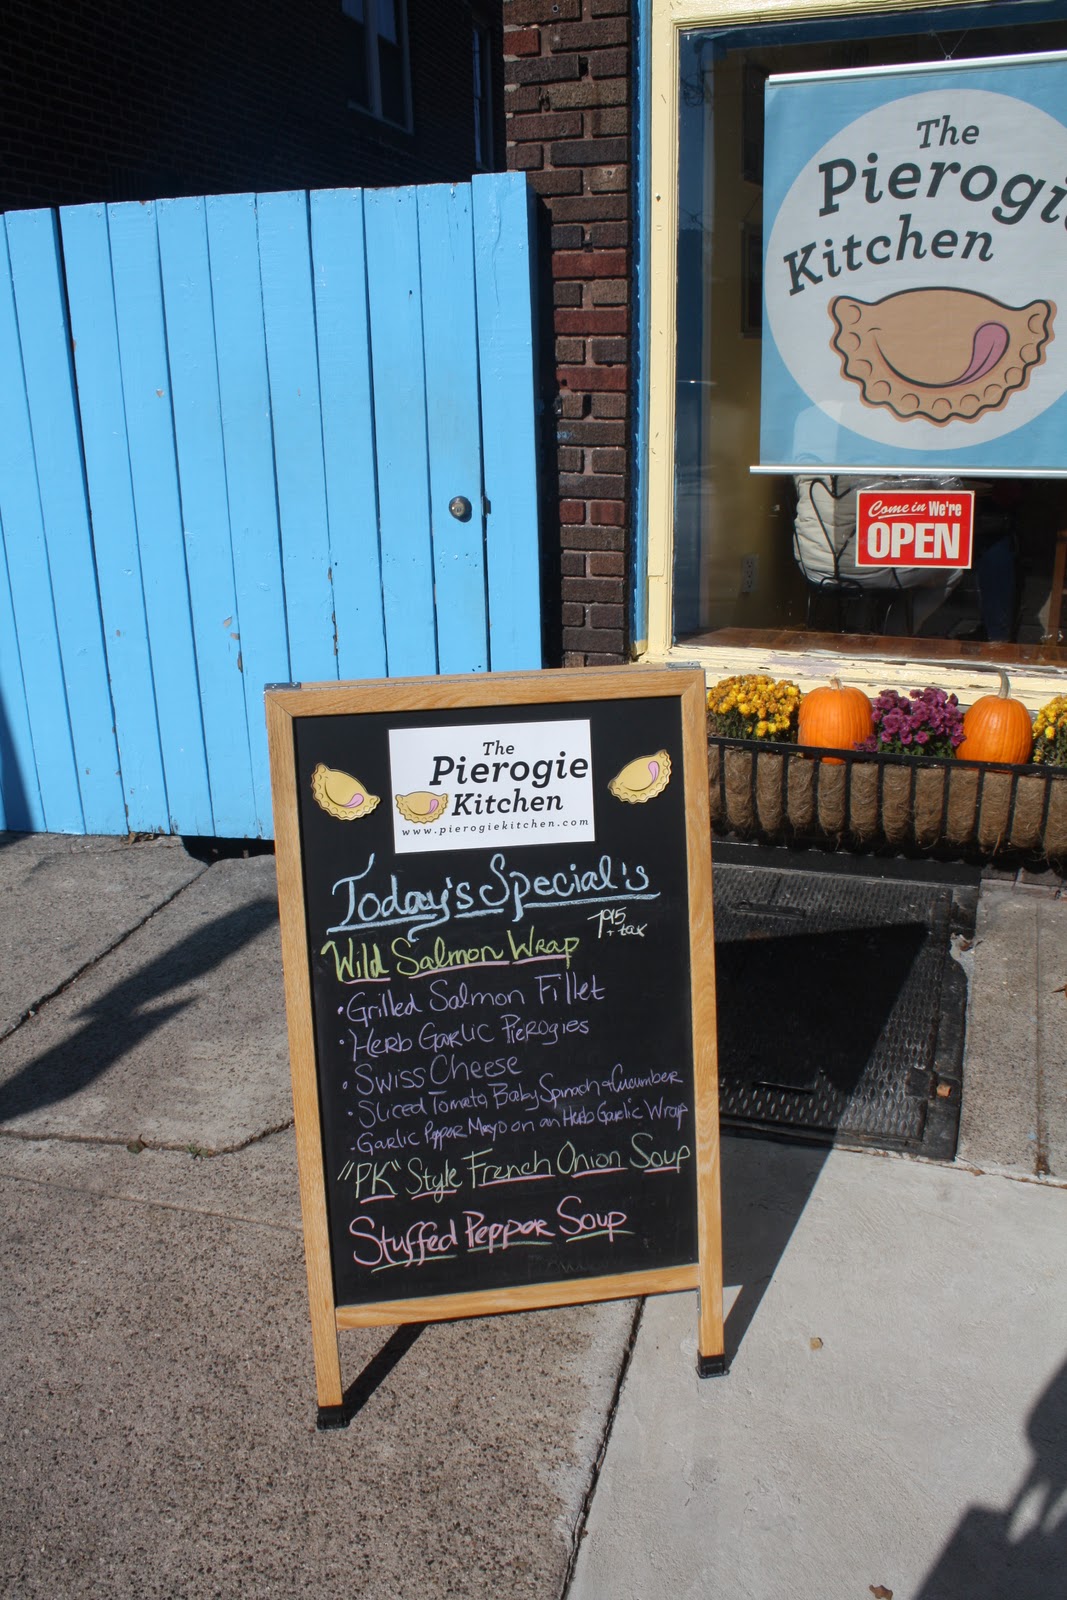 The
Pierogi
Kitchen
Come in We're
OPEN
The
Pierogie
Kitchen
www.pierogiekitchen.com
Today's Special's
7.95
+ tax
Wild Salmon Wrap
• Grilled Salmon Fillet
• Herb Garlic Pierogies
• Swiss Cheese
• Sliced Tomato, Baby Spinach & Cucumber
• Garlic Pepper Mayo on an Herb Garlic Wrap
"PK" Style French Onion Soup
Stuffed Pepper Soup